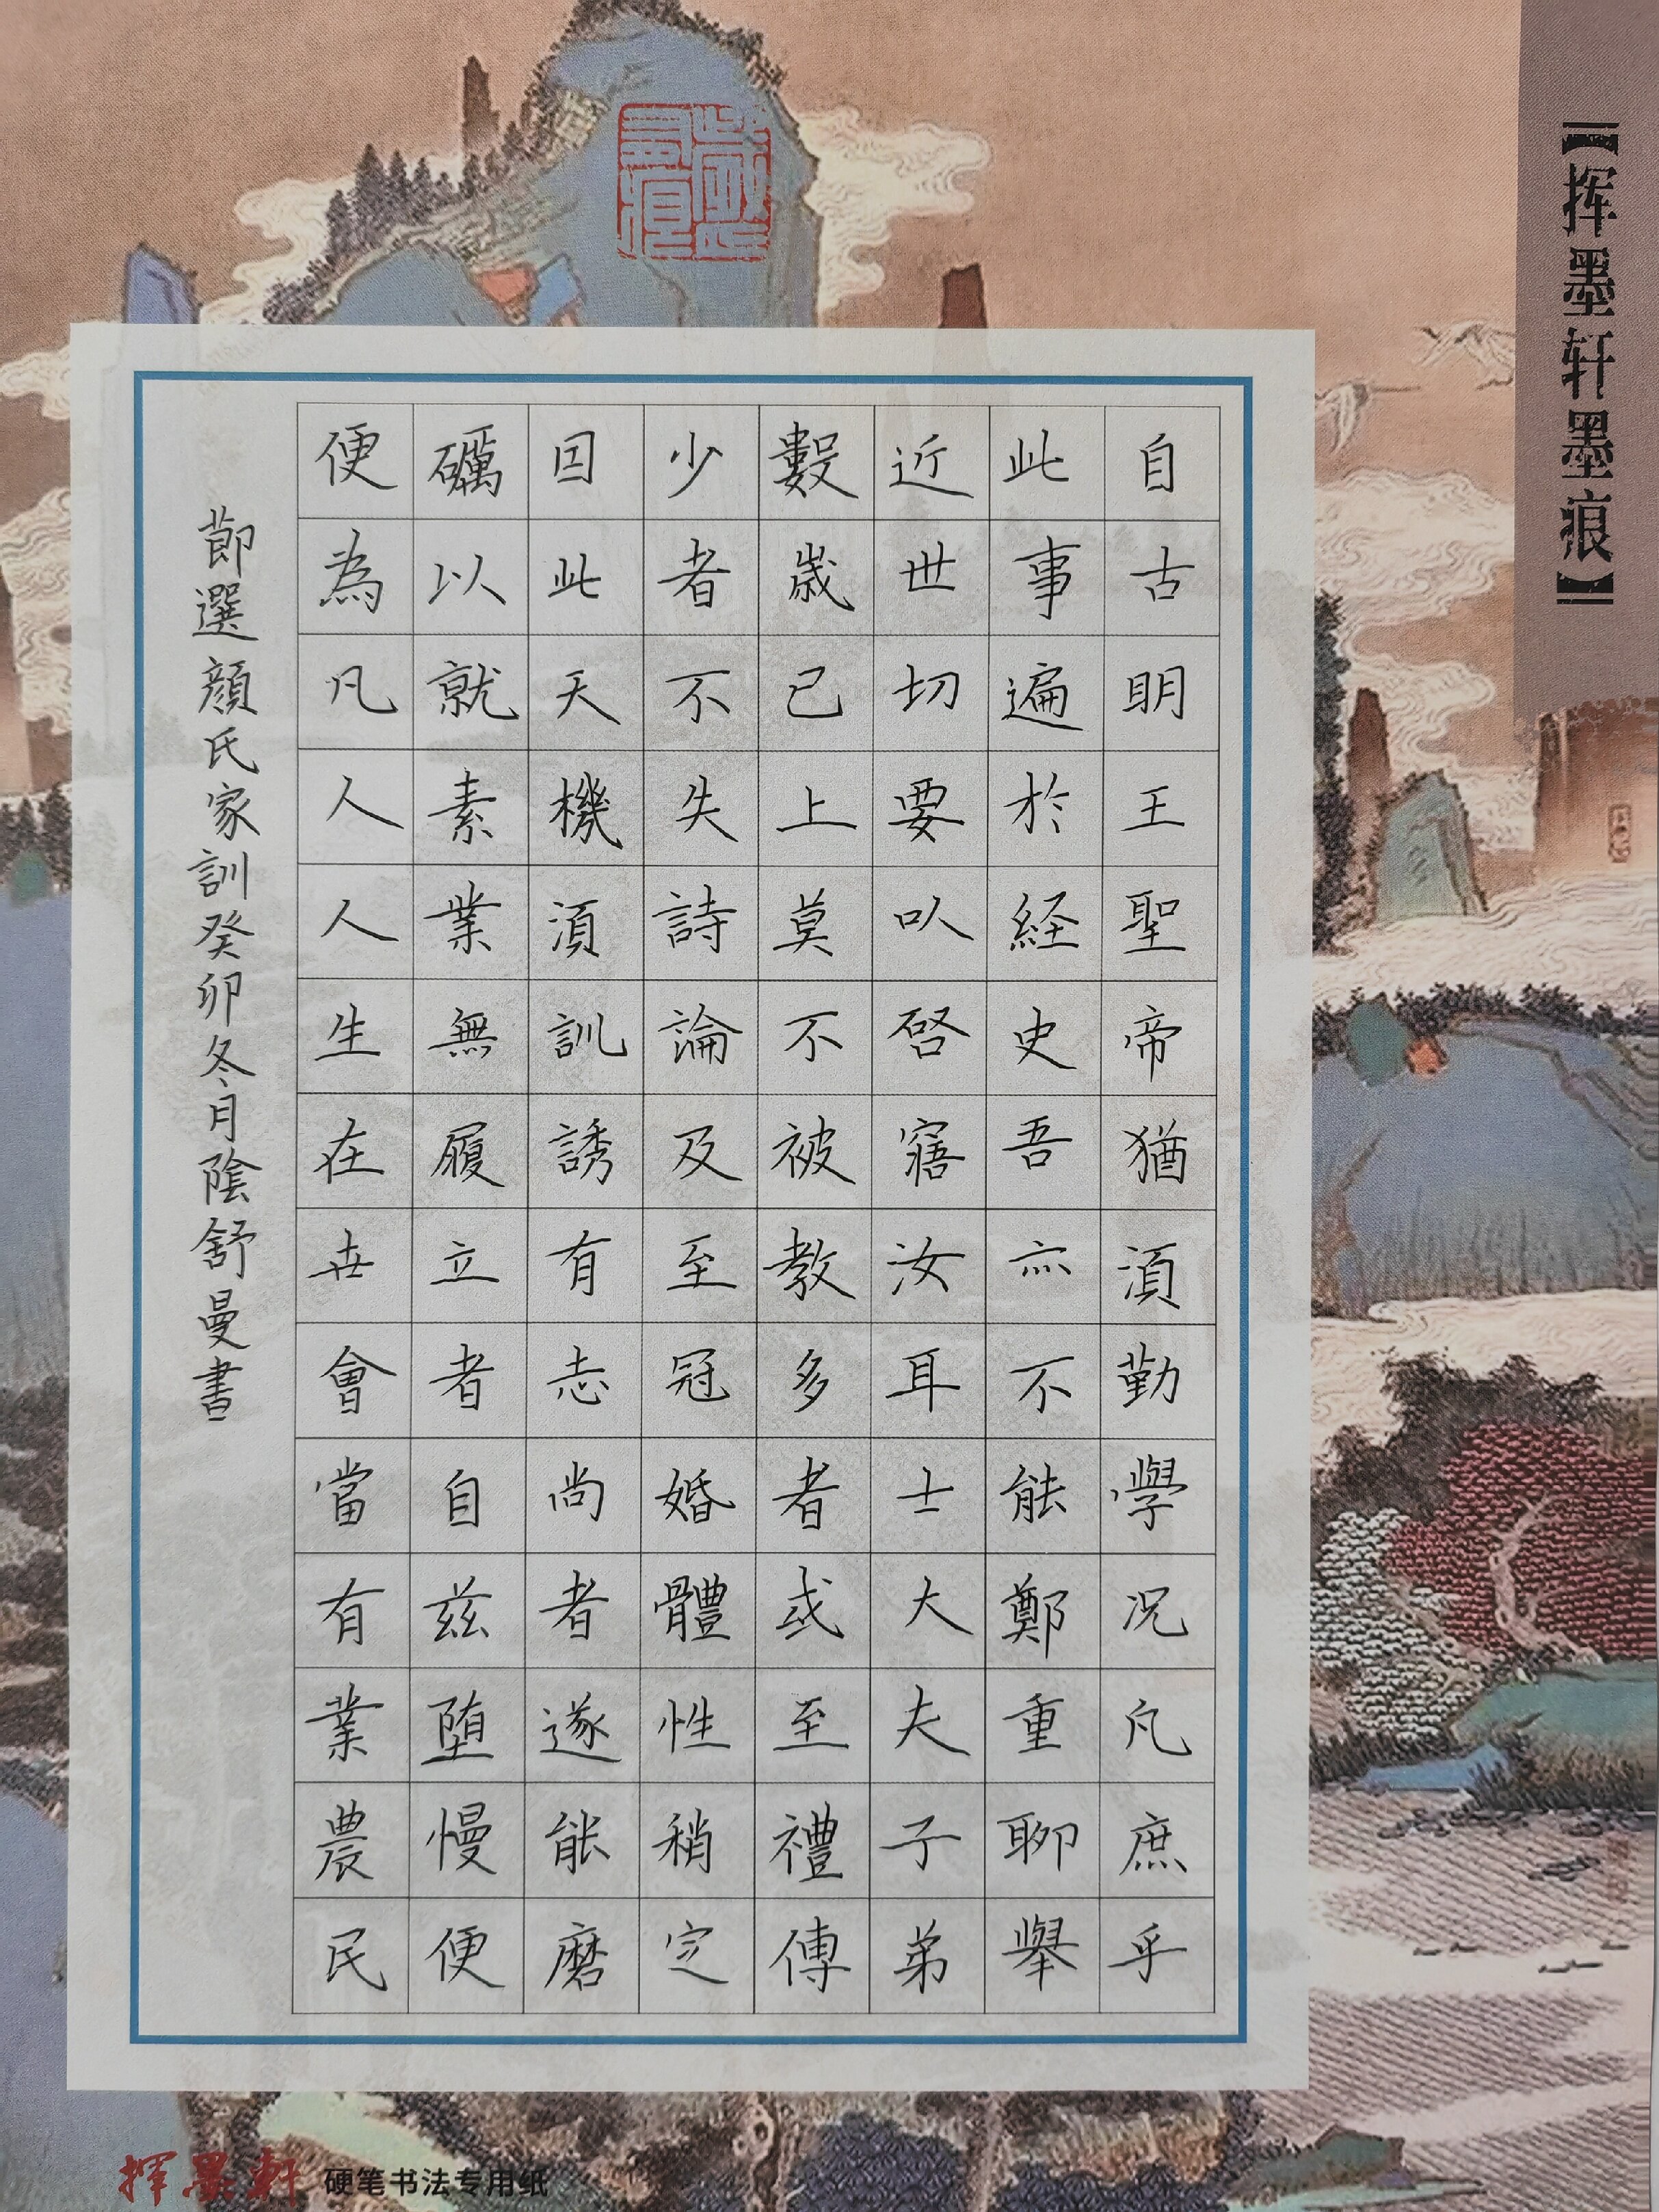 【挥墨轩墨痕】
自古明王聖帝猶須勤學況凡庶乎
此事遍於経史吾亦不能鄭重聊舉
近世切要以啓寤汝耳士大夫子弟
數歲已上莫不被教多者或至禮傳
少者不失詩論及至冠婚體性稍定
因此天機須訓誘有志尚者遂能磨
礪以就素業無履立者自茲墮慢便
便為凡人人生在世會當有業農民
節選顏氏家訓癸卯冬月陰舒曼書
揮墨軒 硬笔书法专用纸